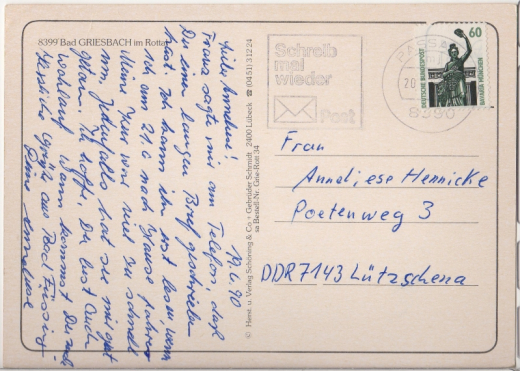 8399 Bad GRIESBACH im Rottal
19.6.90
Liebe Anneliese!
Franz sagte mir am Telefon, daß
Du einen langen Brief geschrieben
hast. Ich kann ihn erst lesen, wenn
ich am 21.6. nach Hause fahre.
Meine Kur war viel zu schnell
um. Jedenfalls hat sie mir gut
getan. Ich hoffe, Du bist auch
wohlauf. Wann kommst Du
Herzliche Grüße aus Bad Füssing
Deine
© Herst. u. Verlag Schöning & Co · Gebrüder Schmidt 2400 Lübeck ☎ (0451) 31224
sa Bestell-Nr. Grie-Rott 34
Schreib
mal
wieder
Post
PASSAU
20
8390
60
DEUTSCHE BUNDESPOST
BAVARIA MÜNCHEN
Frau
Anneliese Hennicke
Poetenweg 3
DDR 7143 Lützschena